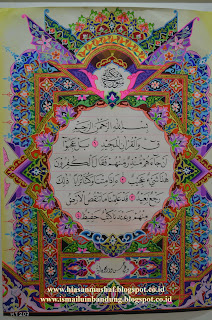 بسم الله الرحمن الرحيم
ق والقرءان المجيد بل عجبوا
أن جاءهم منذر منهم فقال الكفرون
هذا شيء عجيب أءذا متنا وكنا ترابا ذلك
رجع بعيد قد علمنا ما تنقص الأرض
منهم وعندنا كتب حفيظ
www.hiasanmushaf.blogspot.co.id
www.ismailuinbandung.blogspot.co.id